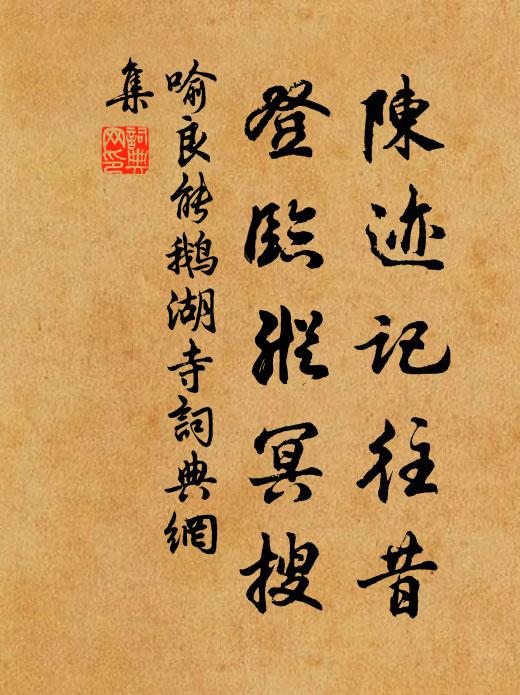 陳迹記往昔
登臨縱冥搜
喻良能鵝湖寺詞典網
集
詞典網印